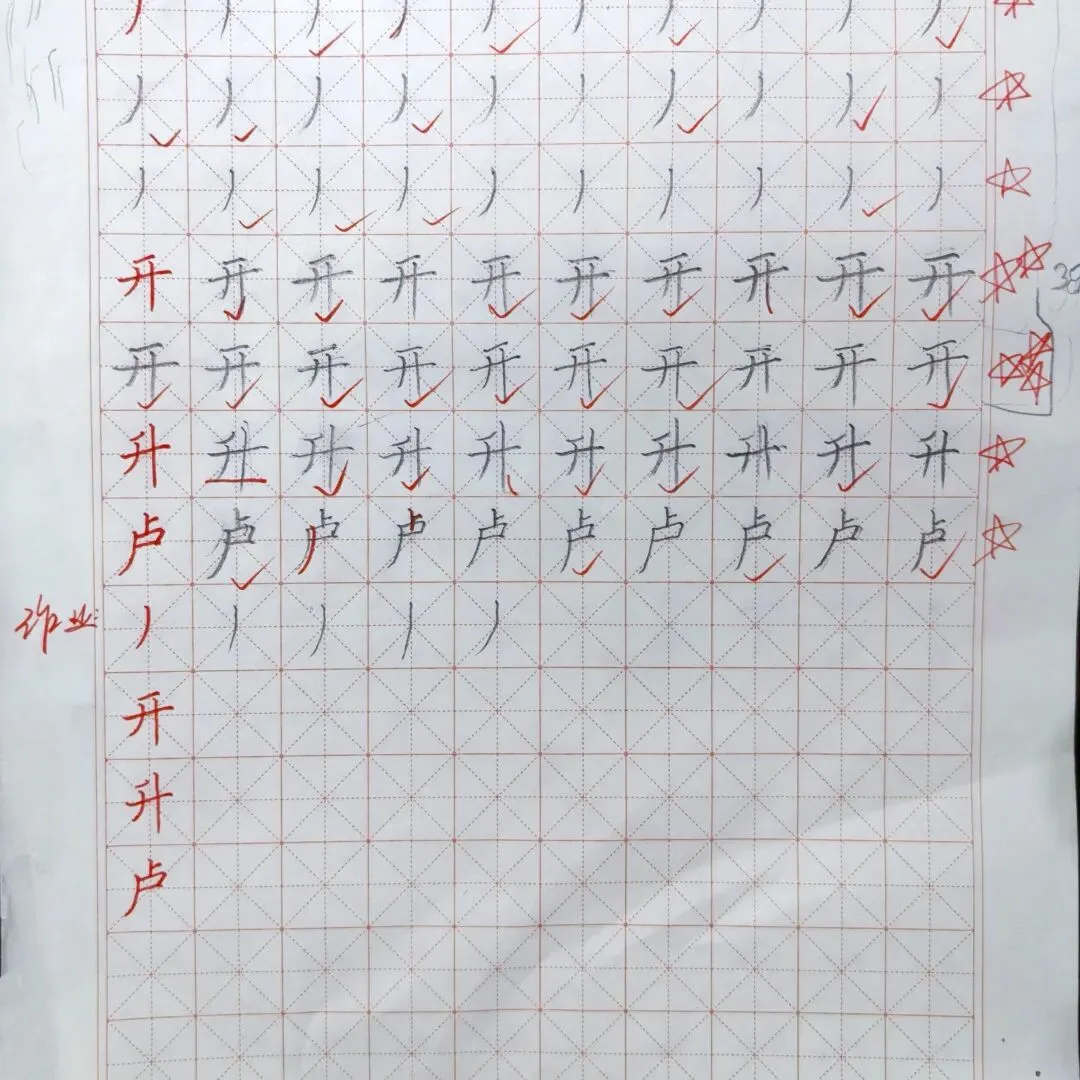 丿 丿 丿 丿 丿 丿 丿 丿 丿 丿
丿 丿 丿 丿 丿 丿 丿 丿 丿 丿
丿 丿 丿 丿 丿 丿 丿 丿 丿 丿
开 开 开 开 开 开 开 开 开 开
开 开 开 开 开 开 开 开 开 开
升 升 升 升 升 升 升 升 升 升
卢 卢 卢 卢 卢 卢 卢 卢 卢 卢
作业: 丿 丿 丿 丿 丿
开
升
卢